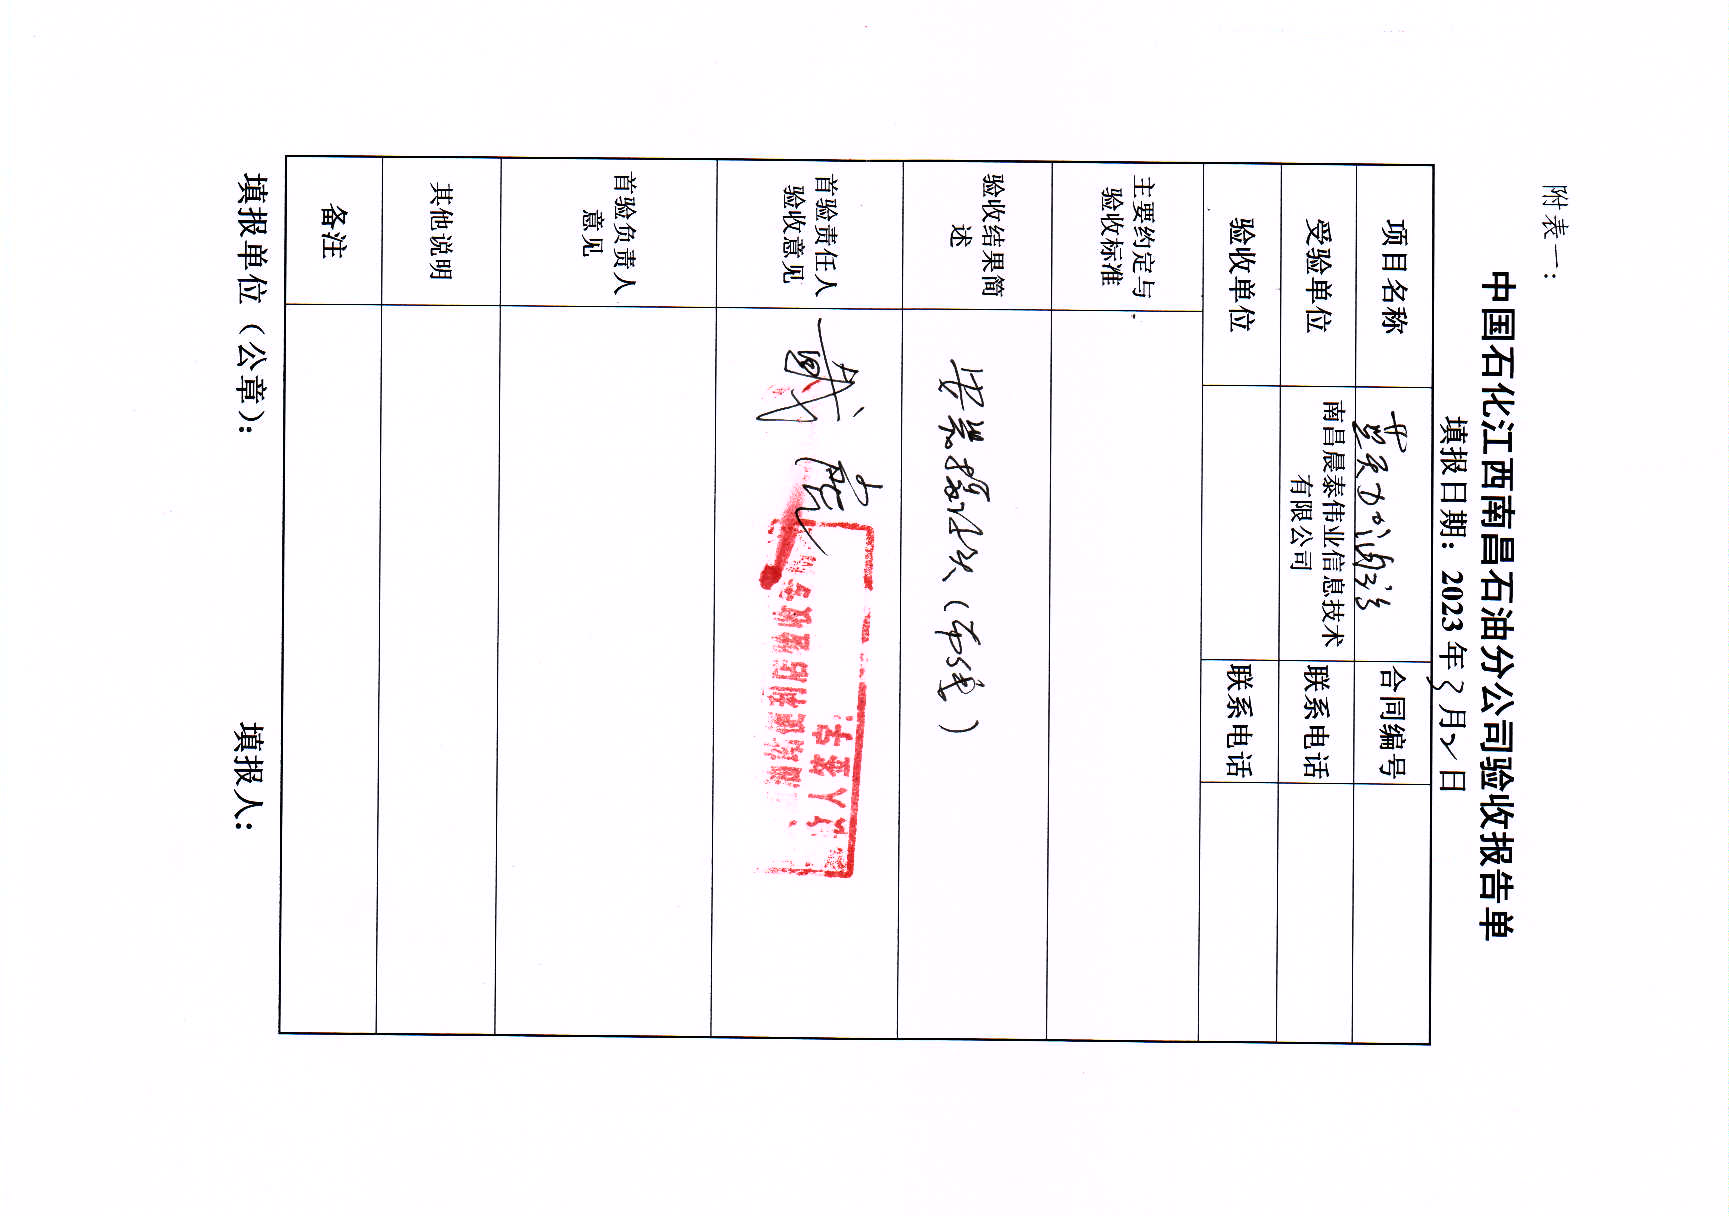 附表一：
中国石化江西南昌石油分公司验收报告单
填报日期：2023年3月2日
项目名称
合同编号
受验单位
南昌晨泰伟业信息技术
有限公司
联系电话
验收单位
联系电话
主要约定与
验收标准
验收结果简
述
安装摄像头（布线）
首验责任人
验收意见
首验负责人
意见
其他说明
备注
填报单位（公章）：
填报人：